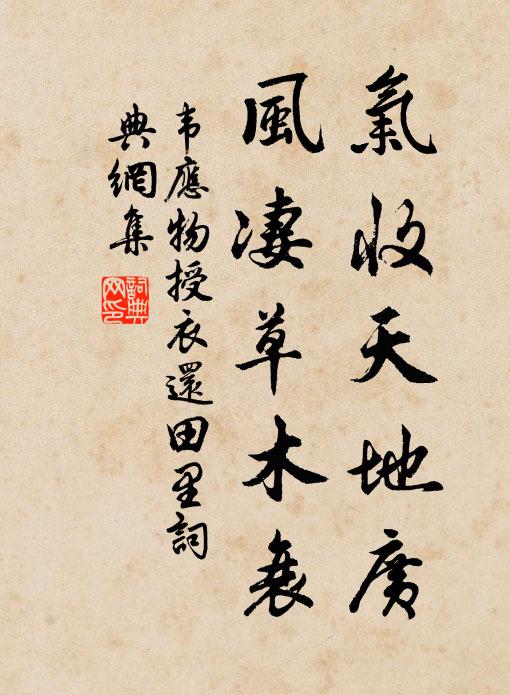 氣收天地廣
風凄草木衰
韦應物授衣還田里詞
典網集
詞典
网印